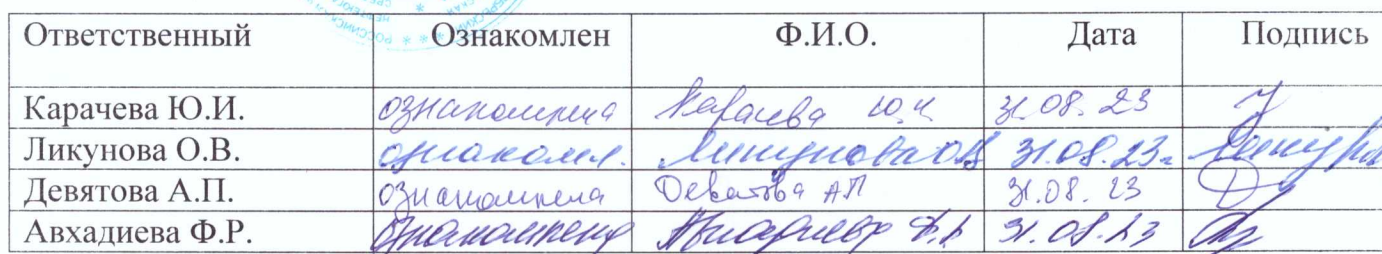 Ответственный Ознакомлен Ф.И.О. Дата Подпись
Карачева Ю.И. ознакомлена Карачева Ю.И. 31.08.23
Ликунова О.В. ознакомл. Ликунова ОВ 31.08.23г
Девятова А.П. ознакомлена Девятова АП 31.08.23
Авхадиева Ф.Р. Ознакомлена Авхадиева Ф.Р. 31.08.23